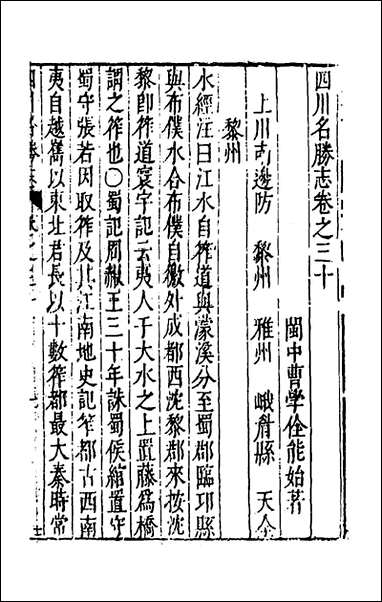 四川名勝志卷之三十
閩中曹學佺能始著
上川南邊防　黎州　雅州　峨眉縣　天全
黎州
水經注曰江水自筰道與濛溪分至蜀郡臨邛縣
與布僕水合布僕自徼外成都西沈黎郡來按沈
黎即筰道寰宇記云夷人于大水之上置藤爲橋
謂之筰也〇蜀記周赧王三十年誅蜀侯綰置守
蜀守張若因取筰及其江南地史記筰都古西南
夷自越嶲以東北君長以十數筰都最大秦時常